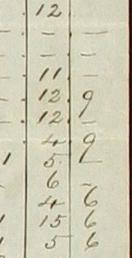 12
- - -
- - -
11 -
12 9
12 -
4 9
1 5 -
6
4 6
1 15 6
1 5 6